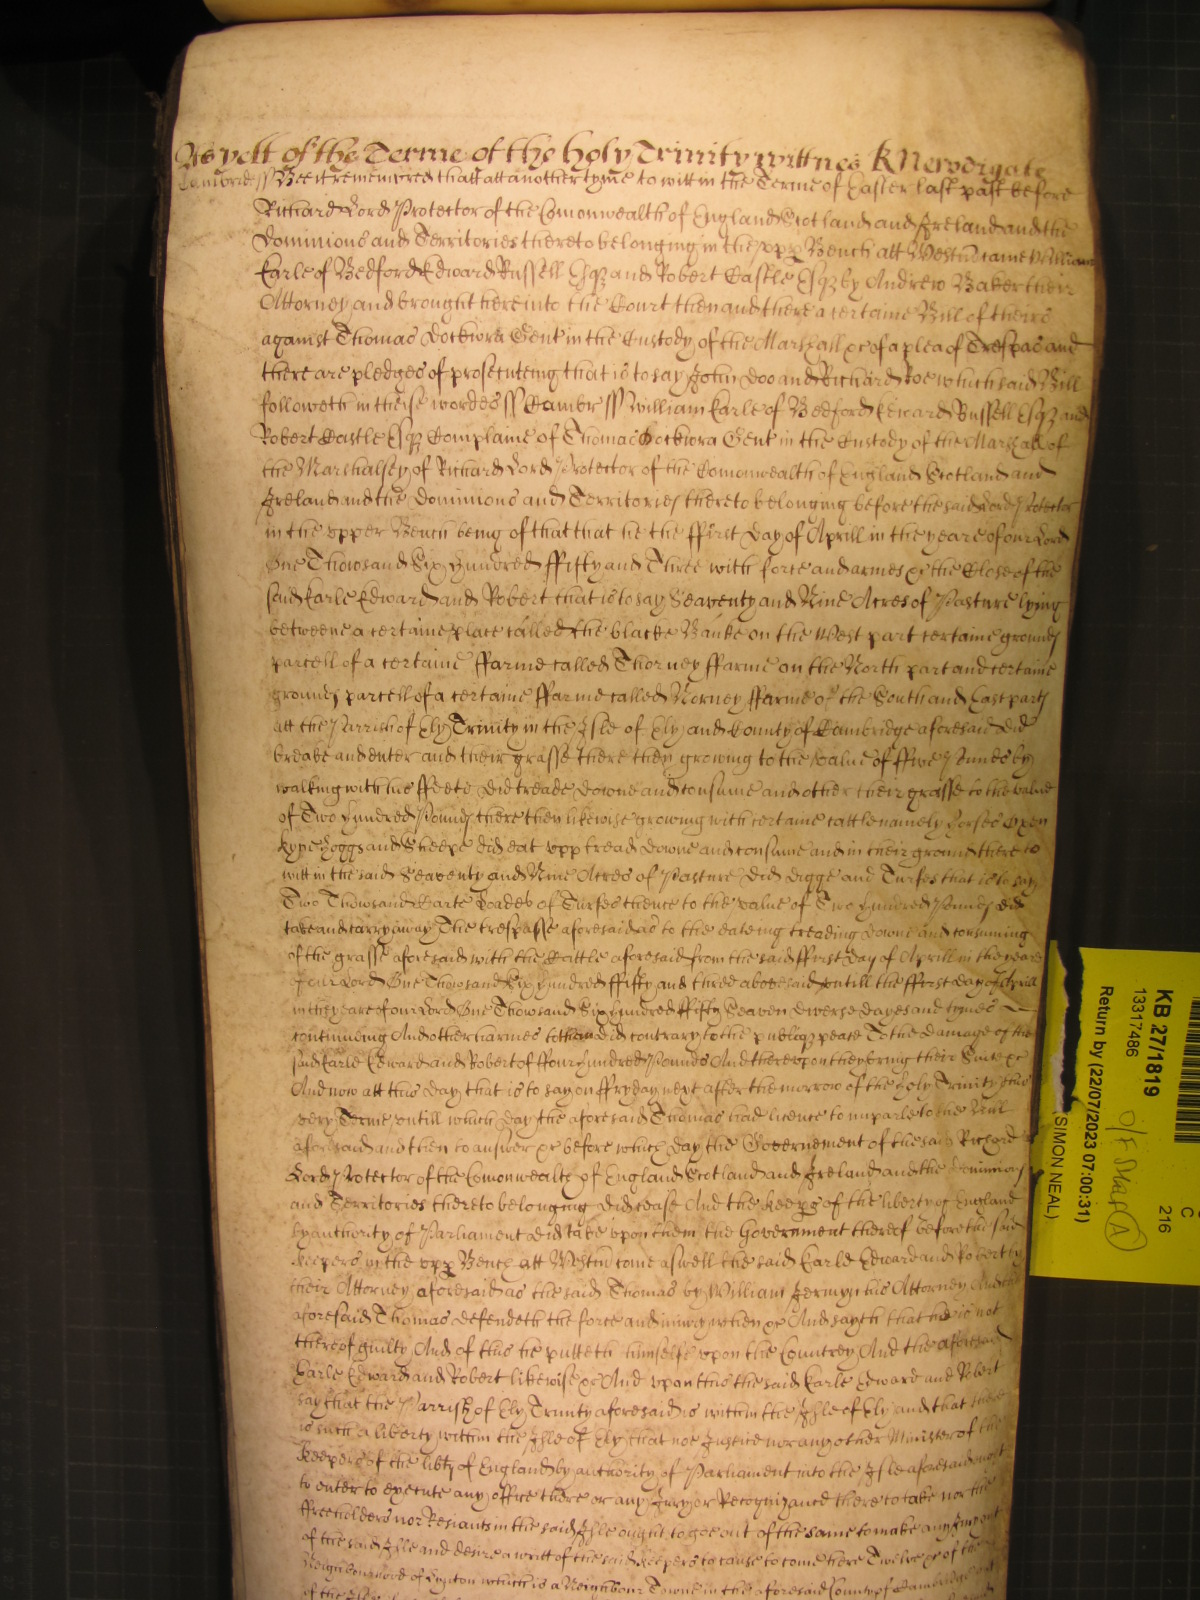 As yett of the Terme of the holy Trinity wittnes R Newdigate
Cambridg ss Bee it remembred that att another tyme to witt in the Terme of Easter last past before
Richard Lord Protector of the Comonwealth of England Scotland and Ireland and the
Dominions and Territories thereto belonging in the upper Bench att Westm came William
Earle of Bedford Edward Russell Esqz and Robert Castle Esqz by Andrew Baker their
Attorney and brought here into the Court then and there a certaine Bill of theirs
against Thomas Dockwra Gent in the Custody of the Marshall &c of a plea of Trespas and
there are pledges of prosecuteing that is to say John Doo and Richard Roe which said Bill
followeth in theise wordes ss Cambr ss William Earle of Bedford Edward Russell Esqz and
Robert Castle Esqz Complaine of Thomas Dockwra Gent in the Custody of the Marshall of
the Marshalsey of Richard Lord Protector of the Comonwealth of England Scotland and
Ireland and the Dominions and Territories thereto belonging before the said Lord Protector
in the upper Bench being of that that he the ffirst day of Aprill in the yeare of our Lord
One Thowsand Six Hundred ffifty and Three with force and armes &c the Close of the
said Earle Edward and Robert that is to say Seaventy and Nine Acres of Pasture lying
betweene a certaine place called the blacke Banke on the West part certaine grounds
parcell of a certaine ffarme called Thorney ffarme on the North part and certaine
grounds parcell of a certaine ffarme called Norney ffarme of the South and East parts
att the Parrish of Ely Trinity in the Isle of Ely and County of Cambridge aforesaid did
breake and enter and their grasse there then growing to the value of ffive Pounds by
walking with his ffeete did treade downe and consume and other their grasse to the value
of Two Hundred Pounds there then likewise growing with certaine cattle namely Horses Oxen
Kyne Hoggs and Sheepe did eat upp tread downe and consume and in their ground there to
witt in the said Seaventy and Nine Acres of Pasture did digge and Turfes that is to say
Two Thowsand Carte Loades of Turfes thence to the value of Two Hundred Pounds did
take and carry away The trespasse aforesaid as to the eateing treading downe and consuming
of the grasse aforesaid with the Cattle aforesaid from the said ffirst day of Aprill in the yeare
of our Lord One Thowsand Six Hundred ffifty and three abovesaid untill the ffirst day of Aprill
in the yeare of our Lord One Thowsand Six Hundred ffifty Seaven diverse dayes and tymes
continuing And other harmes to them did contrary to the publiq peace To the damage of the
said Earle Edward and Robert of ffour Hundred Pounds And thereupon they bring their Suite &c
And now att this day that is to say on ffryday next after the morrow of the holy Trinity this
very Terme untill which day the aforesaid Thomas had licence to imparle to the Bill
aforesaid and then to answer &c before which day the Governement of the said Richard
Lord Protector of the Comonwealth of England Scotland and Ireland and the Dominions
and Territories thereto belonging did cease And the Keepers of the liberty of England
by authority of Parliament did take upon them the Government thereof before the said
Keepers in the upper Bench att Westm come aswell the said Earle Edward and Robert by
their Attorney aforesaid as the said Thomas by William Jermy his Attorney And the
aforesaid Thomas defendeth the force and iniury when &c And sayth that hee is not
thereof guilty And of this he putteth himselfe upon the Countrey And the aforesaid
Earle Edward and Robert likewise &c And upon this the said Earle Edward and Robert
say that the Parrish of Ely Trinity aforesaid is within the Isle of Ely and that there
is such a liberty within the Isle of Ely that noe Justice nor any other Minister of the
Keepers of the libty of England by authority of Parliament into the Isle aforesaid ought
to enter to execute any office there or any Jury or Recognizance there to take nor the
ffreeholders nor Resiants in the said Isle ought to goe out of the same to make any Jury out
of the said Isle and desire a writt of the said Keepers to cause to come here Twelve &c of the
Neighbourhood of which is a Neighbour Towne in the aforesaid County of Cambridge
of the
KB 27/1819
13317486
C
216
Return by (22/07/2023 07:00:31)
(SIMON NEAL)
A